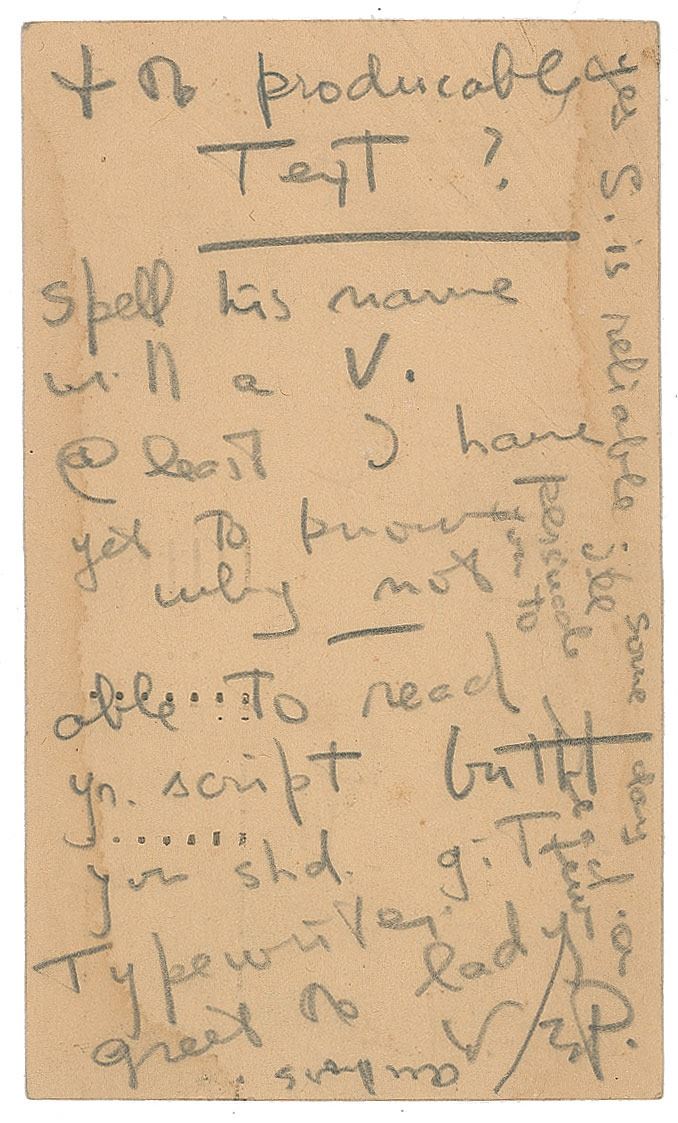 + the producable
Text ?
Spell his name
with a V.
@ least I have
yet to know
why not
able to read
yr. script but
you shd. git
Typewriter.
greet the lady
yes S. is reliable ill some day
persuade
him to